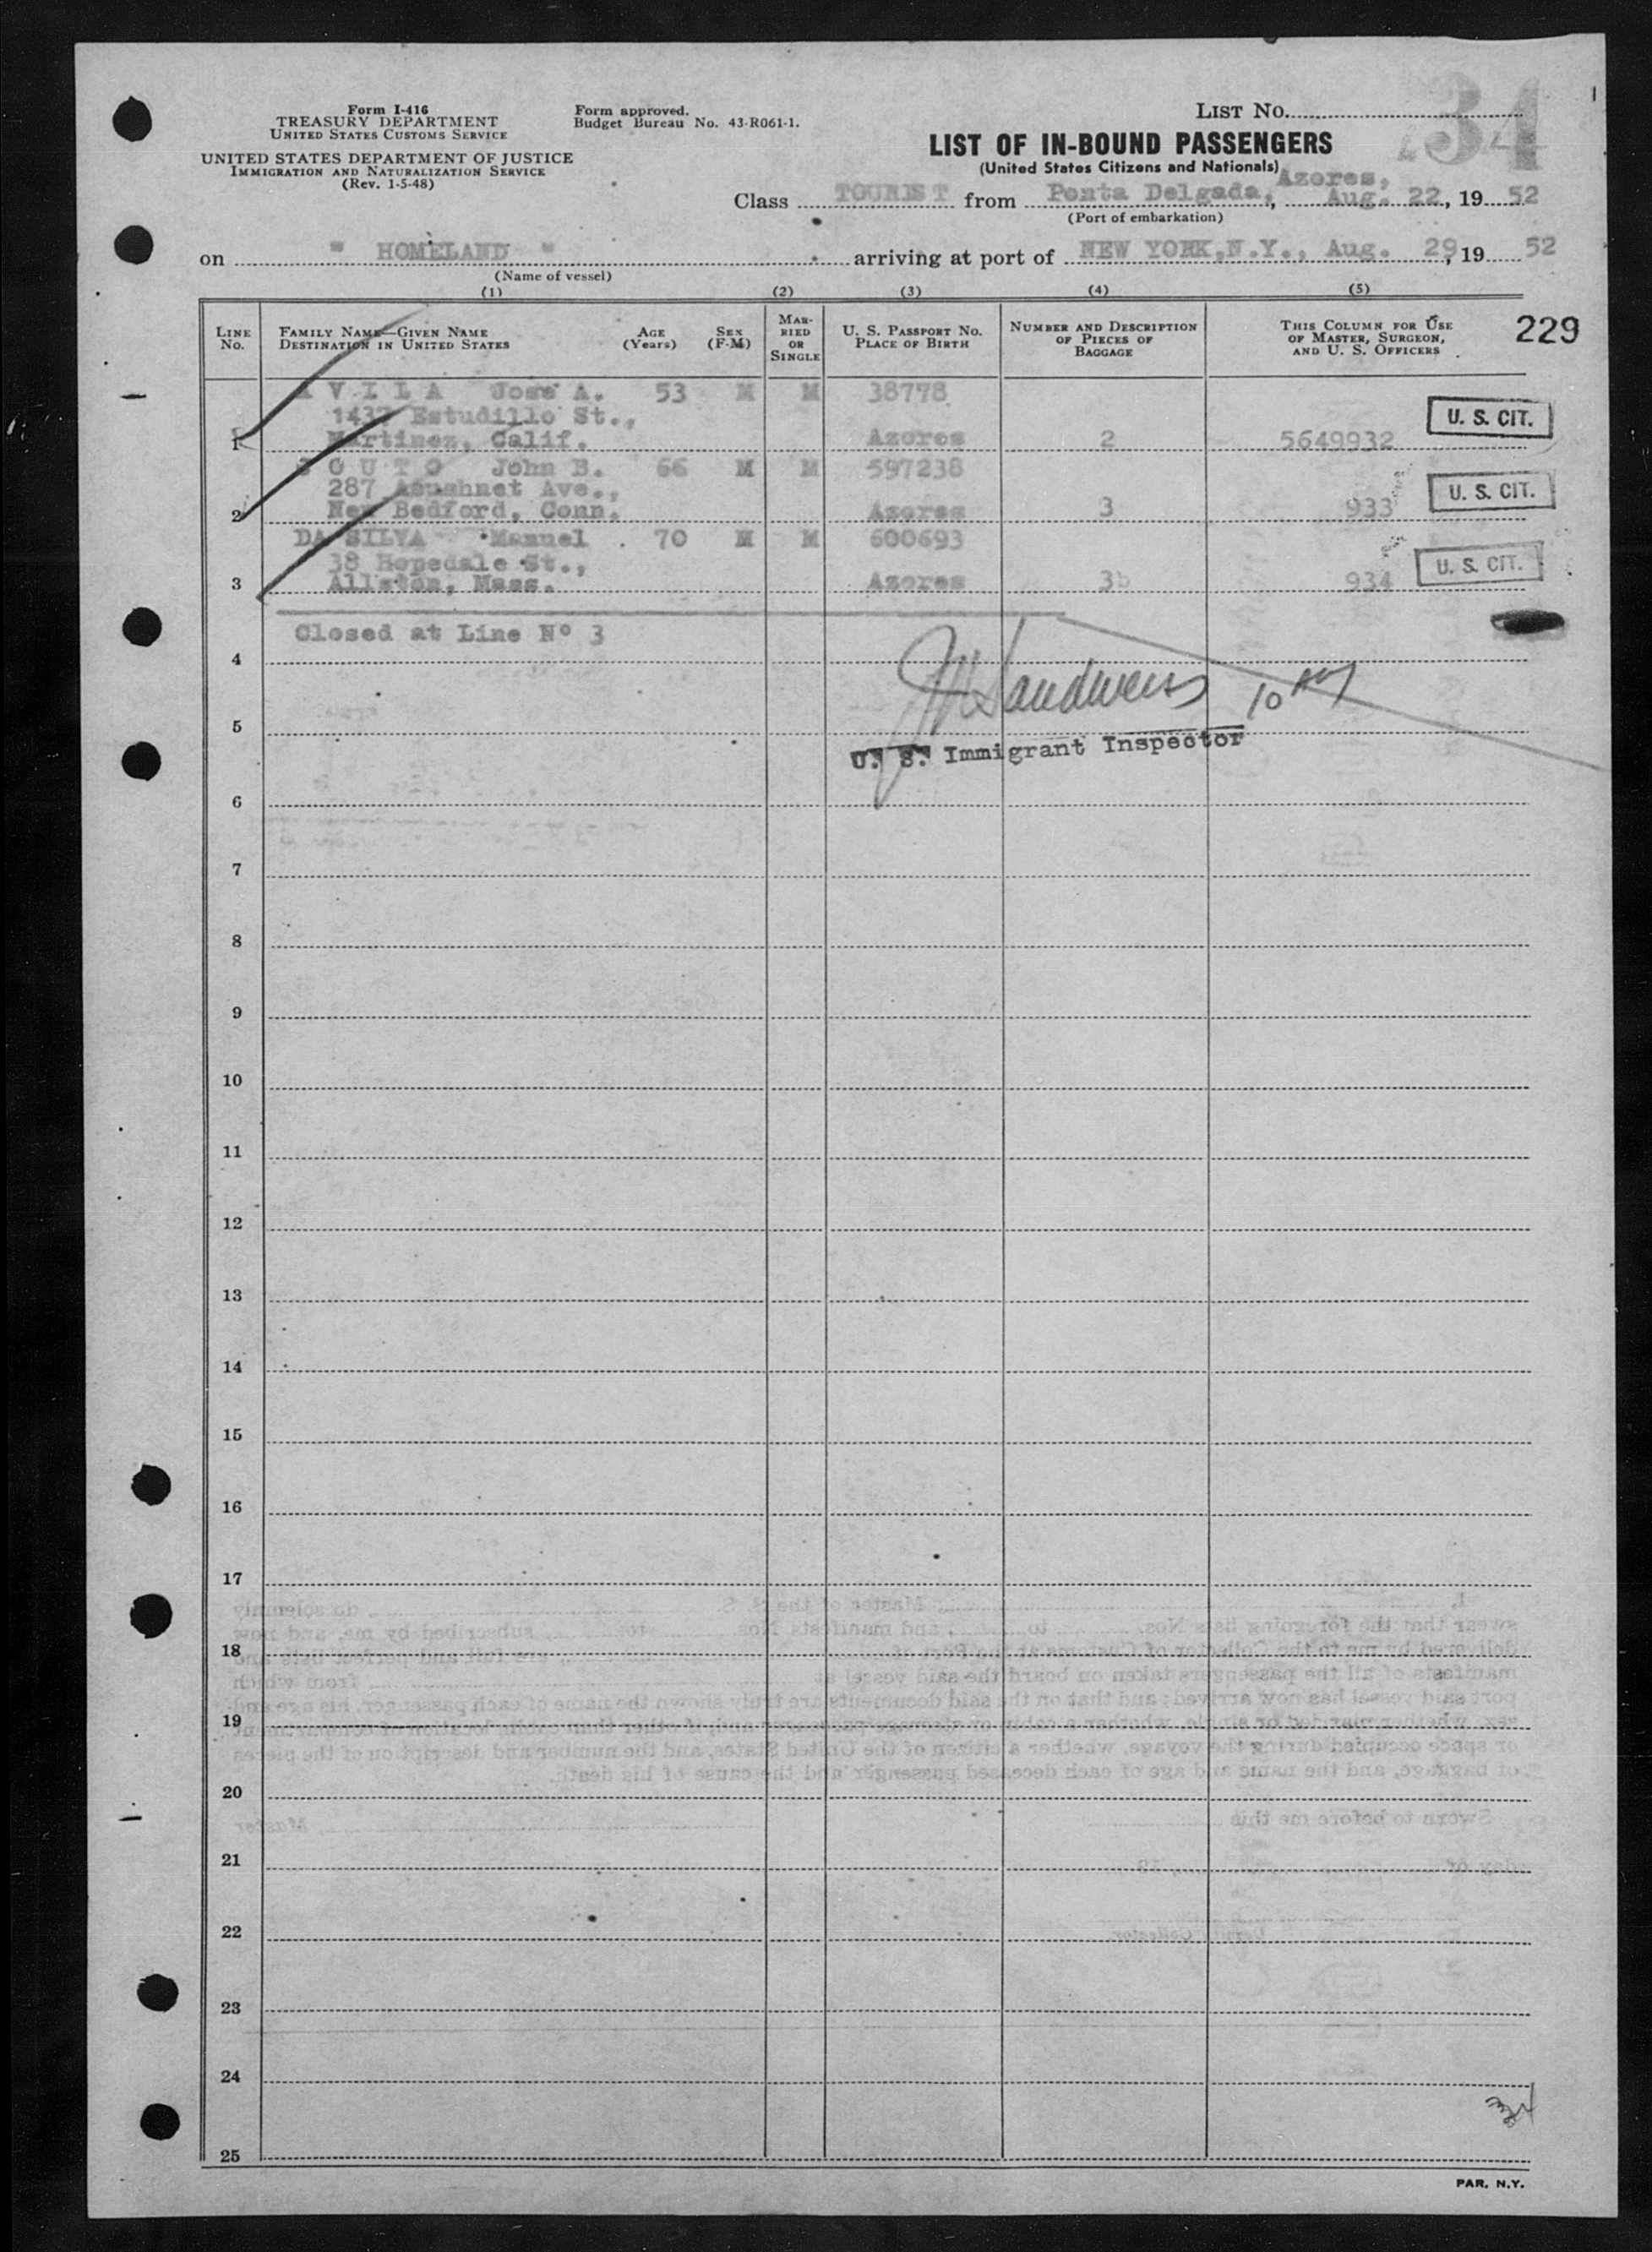 Form I-416
TREASURY DEPARTMENT
UNITED STATES CUSTOMS SERVICE
UNITED STATES DEPARTMENT OF JUSTICE
IMMIGRATION AND NATURALIZATION SERVICE
(Rev. 1-5-48)
Form approved.
Budget Bureau No. 43-R061-1.
LIST No. 34
LIST OF IN-BOUND PASSENGERS
(United States Citizens and Nationals)
Class TOURIST from Ponta Delgada, Azores, Aug. 22, 19 52
(Port of embarkation)
on " HOMELAND " arriving at port of NEW YORK, N.Y., Aug. 29, 19 52
(Name of vessel)
(1) (2) (3) (4) (5)
LINE No. FAMILY NAME—GIVEN NAME DESTINATION IN UNITED STATES AGE (Years) SEX (F-M) MARRIED OR SINGLE U. S. PASSPORT NO. PLACE OF BIRTH NUMBER AND DESCRIPTION OF PIECES OF BAGGAGE THIS COLUMN FOR USE OF MASTER, SURGEON, AND U. S. OFFICERS
229
A V I L A Jose A. 53 M M 38778
Estudillo St.,
1 Martinez, Calif. Azores 2 5649932 U. S. CIT.
S O U T O John B. 66 M M 597238
287 Acushnet Ave.,
2 New Bedford, Conn. Azores 3 933 U. S. CIT.
DA SILVA Manuel 70 M M 600693
38 Hopedale St.,
3 Allston, Mass. Azores 3b 934 U. S. CIT.
Closed at Line Nº 3
4
Sandweiss 10 AM
5
U. S. Immigrant Inspector
6
7
8
9
10
11
12
13
14
15
16
17
18
19
20
21
22
23
24
34
25
PAR. N.Y.